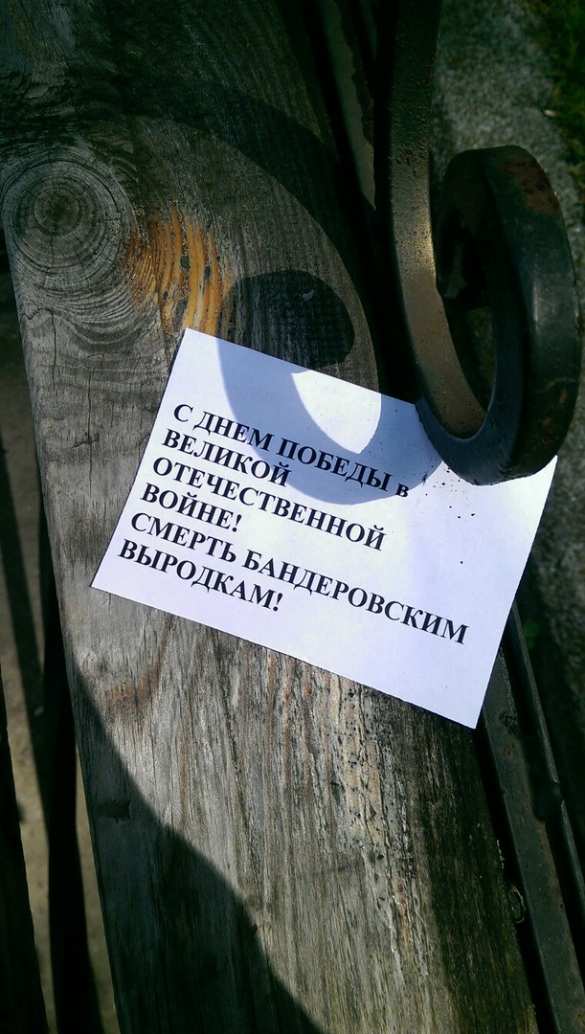 С ДНЕМ ПОБЕДЫ в
ВЕЛИКОЙ
ОТЕЧЕСТВЕННОЙ
ВОЙНЕ!
СМЕРТЬ БАНДЕРОВСКИМ
ВЫРОДКАМ!